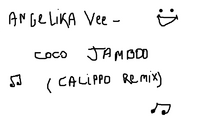 ANGELIKA Vee -
COCO JAMBOO
(CALIPPO REMIX)